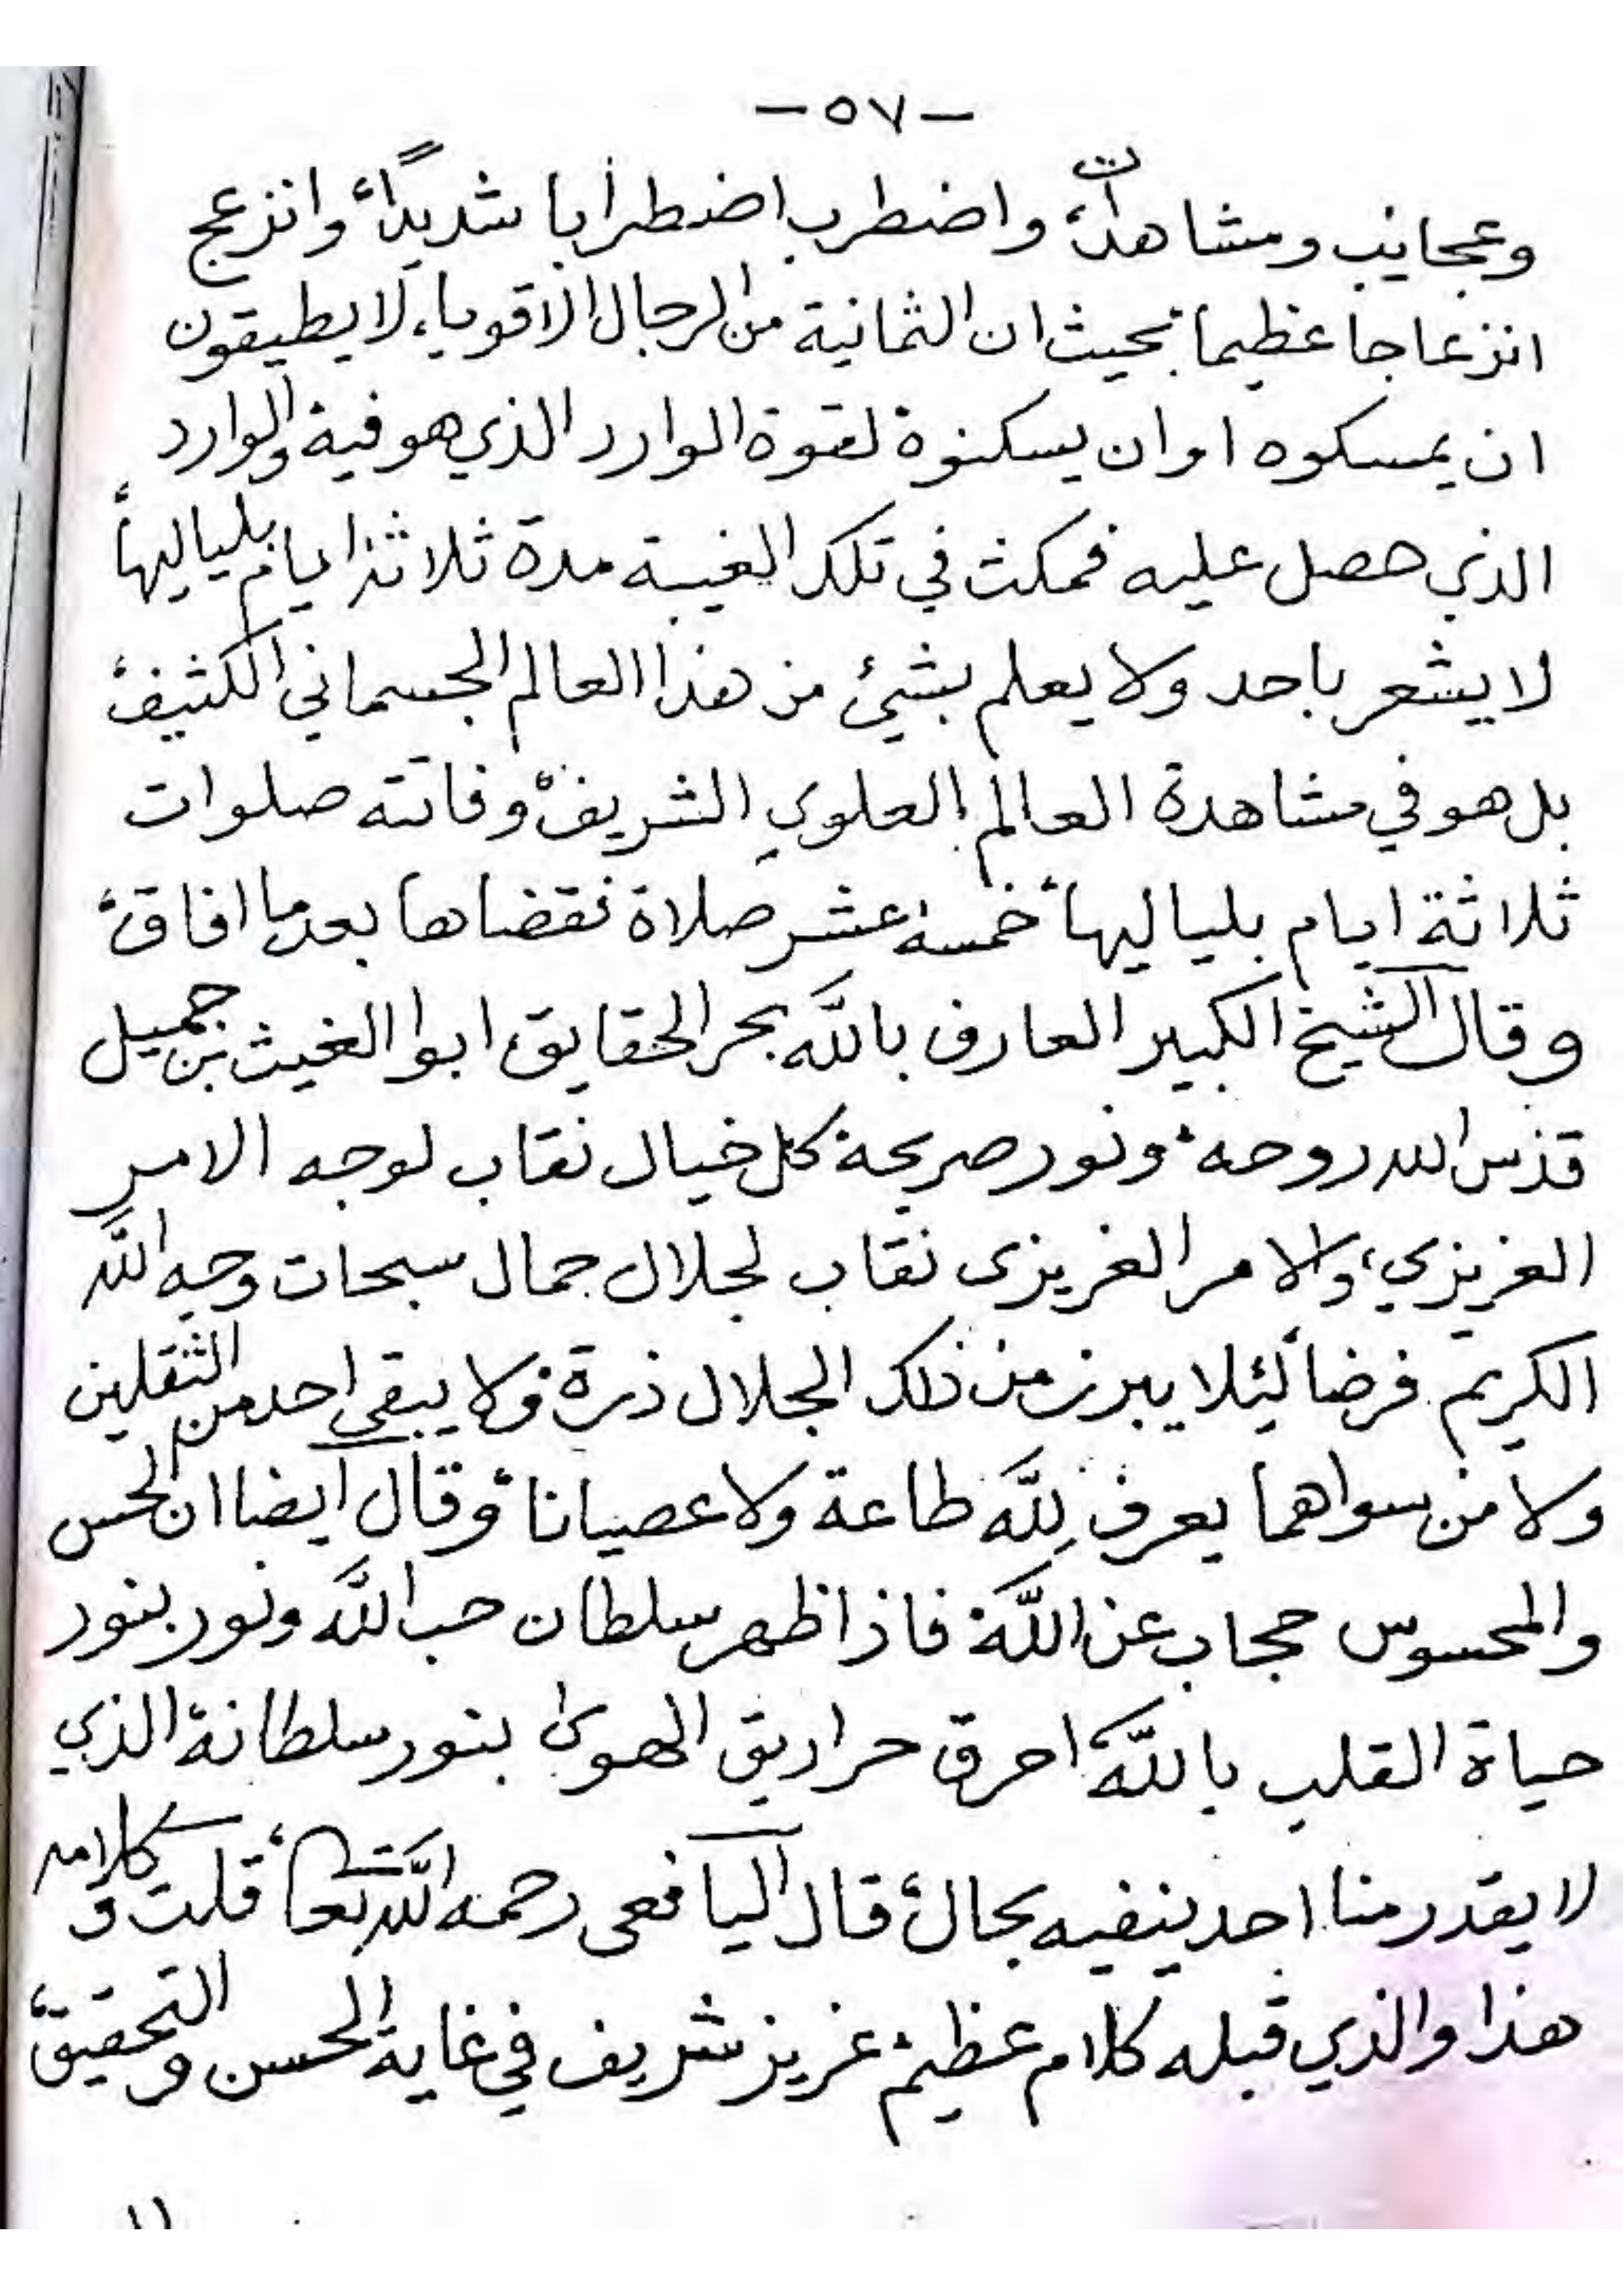 -٥٧-
وعجايب ومشاهدات، واضطرب اضطرابا شديداً، وانزعج
انزعاجا عظيما بحيث ان الثمانية من الرجال الاقوياء، لا يطيقون
ان يمسكوه او ان يسكنوة لقوة الوارد الذي هو فية والوارد
الذي حصل عليه فمكث في تلك الغيبة مدة ثلاثة ايام بلياليها،
لا يشعر باحد ولا يعلم بشئ من هذا العالم الجسماني الكثيف،
بل هو في مشاهدة العالم العلوي الشريف، وفاتته صلوات
ثلاثة ايام بلياليها، خمسة عشر صلاة فقضاها بعد ما افاق،
وقال الشيخ الكبير العارف بالله بحر الحقايق ابوا الغيث بن جميل
قدس الله روحه، ونور صريحة كل خيال نقاب لوجه الامر
الغريزي، والامر الغريزى نقاب لجلال جمال سبحات وجه الله
الكريم فرضا لئلا يبرز من ذلك الجلال ذرة ولا يبقى احد من الثقلين
ولا من سواهما يعرف لله طاعة ولا عصيانا، وقال ايضا ان الحس
والمحسوس حجاب عن الله، فاذا ظهر سلطان حب الله ونور بنور
حياة القلب بالله، احرق حراريق الهوى بنور سلطانة الذي
لا يقدر منا احد ينفيه بحال، قال اليافعى رحمه الله تعا، قلت وكلامه
هذا والذي قبله كلام عظيم، عزيز شريف في غاية الحسن والتحقيق،